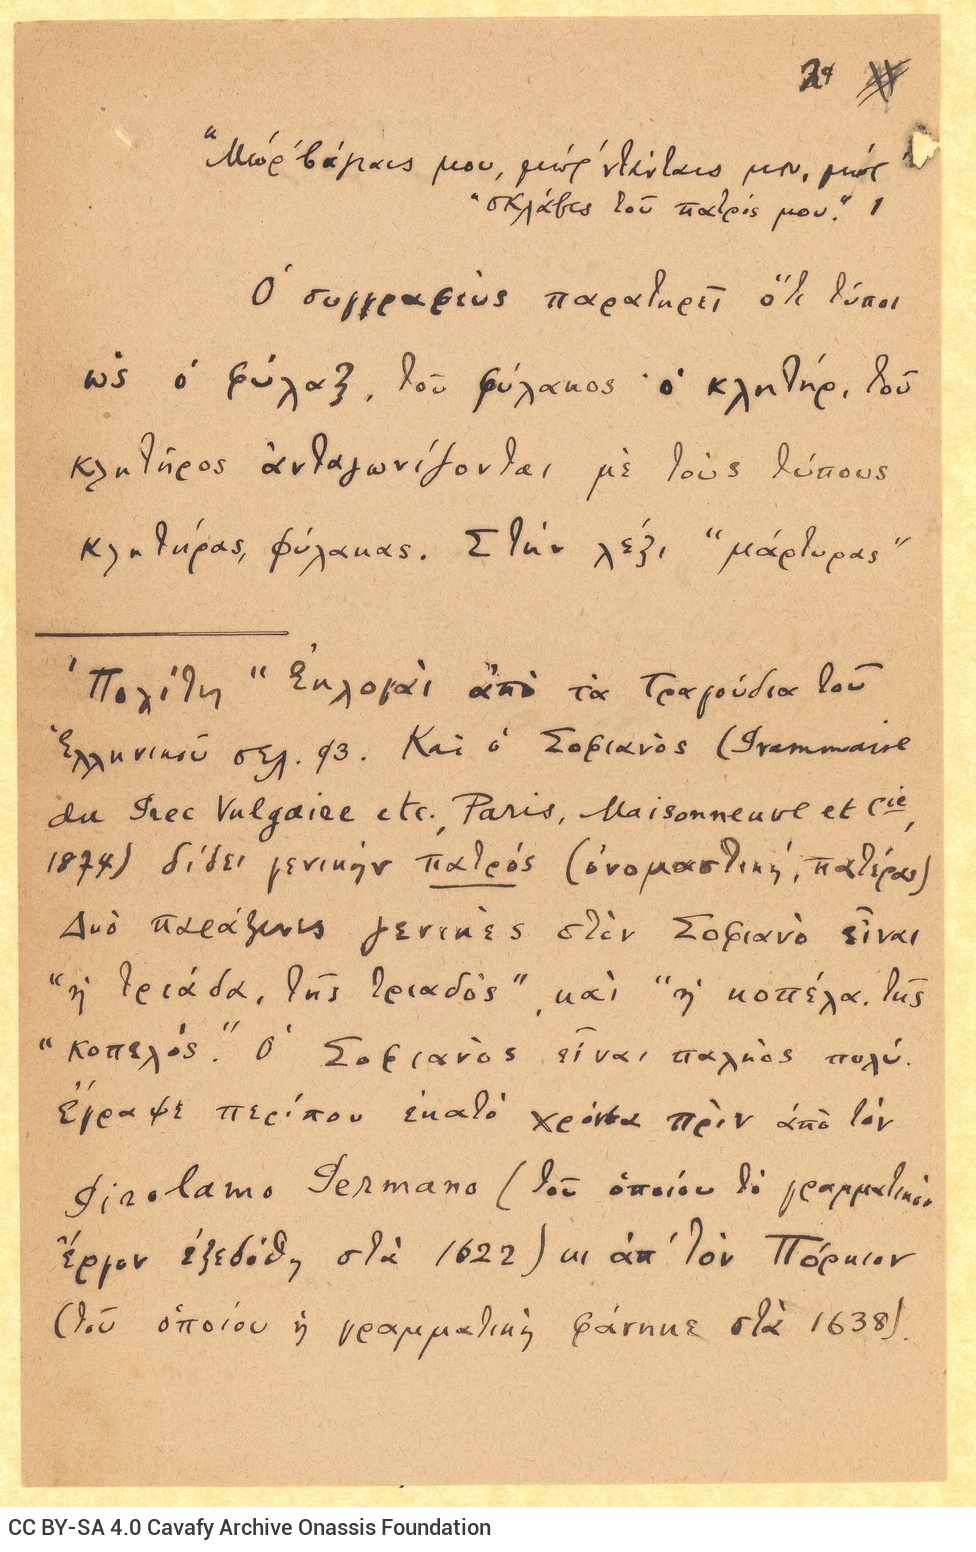 24
"Μωρ' βάγιαις μου, μωρ' ντάνταις μου, μωρ'
"σκλάβες τοῦ πατρός μου." 1
Ὁ συγγραφεὺς παρατηρεῖ ὅτι τύποι
ὡς ὁ φύλαξ, τοῦ φύλακος· ὁ κλητήρ, τοῦ
κλητῆρος ἀνταγωνίζονται μὲ τοὺς τύπους
κλητήρας, φύλακας. Στὴν λέξι "μάρτυρας"
1 Πολίτη "Ἐκλογαὶ ἀπὸ τὰ Τραγούδια τοῦ
Ἑλληνικοῦ σελ. 93. Καὶ ὁ Σοφιανὸς (Grammaire
du Grec Vulgaire etc., Paris, Maisonneuve et Cie,
1874) δίδει γενικὴν πατρός (ὀνομαστική, πατέρας)
Δυὸ παράξενες γενικὲς στὸν Σοφιανὸ εἶναι
"ἡ τριάδα, τῆς τριαδὸς", καὶ "ἡ κοπέλα, τῆς
"κοπελός." Ὁ Σοφιανὸς εἶναι παληὸς πολύ.
Ἔγραψε περίπου ἑκατὸ χρόνια πρὶν ἀπὸ τὸν
Girolamo Germano (τοῦ ὁποίου τὸ γραμματικὸν
ἔργον ἐξεδόθη στὰ 1622) κι ἀπ' τὸν Πόρκιον
(τοῦ ὁποίου ἡ γραμματικὴ φάνηκε στὰ 1638).
CC BY-SA 4.0 Cavafy Archive Onassis Foundation